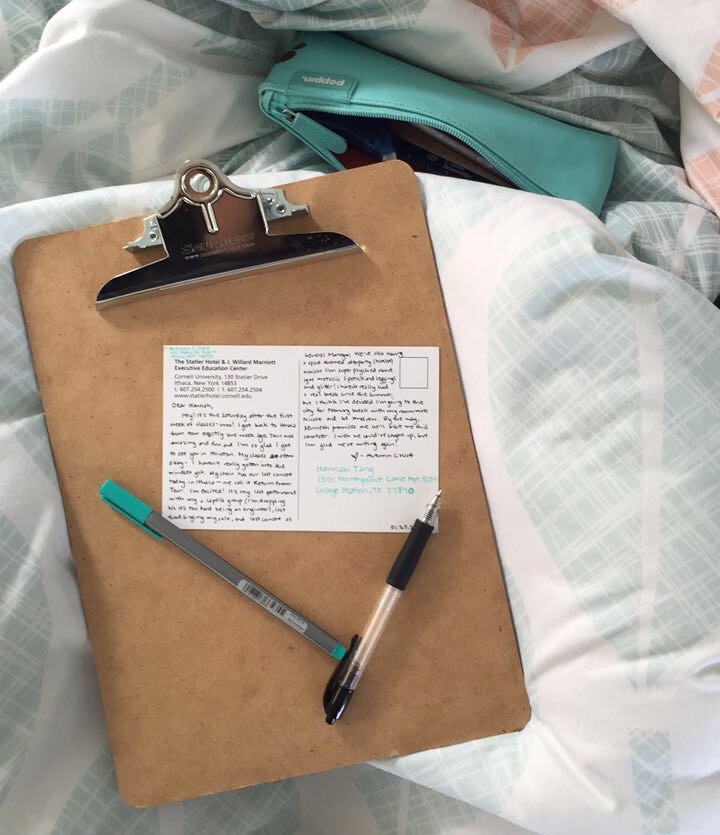 poppin.
SAUNDERS
The Statler Hotel & J. Willard Marriott
Executive Education Center
Cornell University, 130 Statler Drive
Ithaca, New York 14853
t. 607.254.2500 | f. 607.254.2504
www.statlerhotel.cornell.edu
Dear Hannah,
Hey! It's the Saturday after the first
week of classes - woo! I got back to Ithaca
from tour exactly one week ago. Tour was
amazing and fun and I'm so glad I got
to see you in Houston. My classes seem
okay - I haven't really gotten into the
mindset yet. My choir has our last concert
today in Ithaca - we call it Return From
Tour. I'm excited! It's my last performance
with my a capella group (I'm dropping
b/c it's too hard being an engineer), last
time singing my solo, and last concert as
General Manager. We're also having
a space themed afterparty
which I'm super psyched about
metallic lipstick and leggings
and glitter! I haven't really had
a real break since the summer,
but I think I've decided I'm going to the
city for February break with my roommate
Nicole and bf Andrew. By the way,
Kenneth promises me he'll visit me this
semester. I wish we could've caught up, but
I'm glad we're writing again!
Hannah Tang
1501 Northpoint Lane Apt
College Station, TX 77840
01.27.